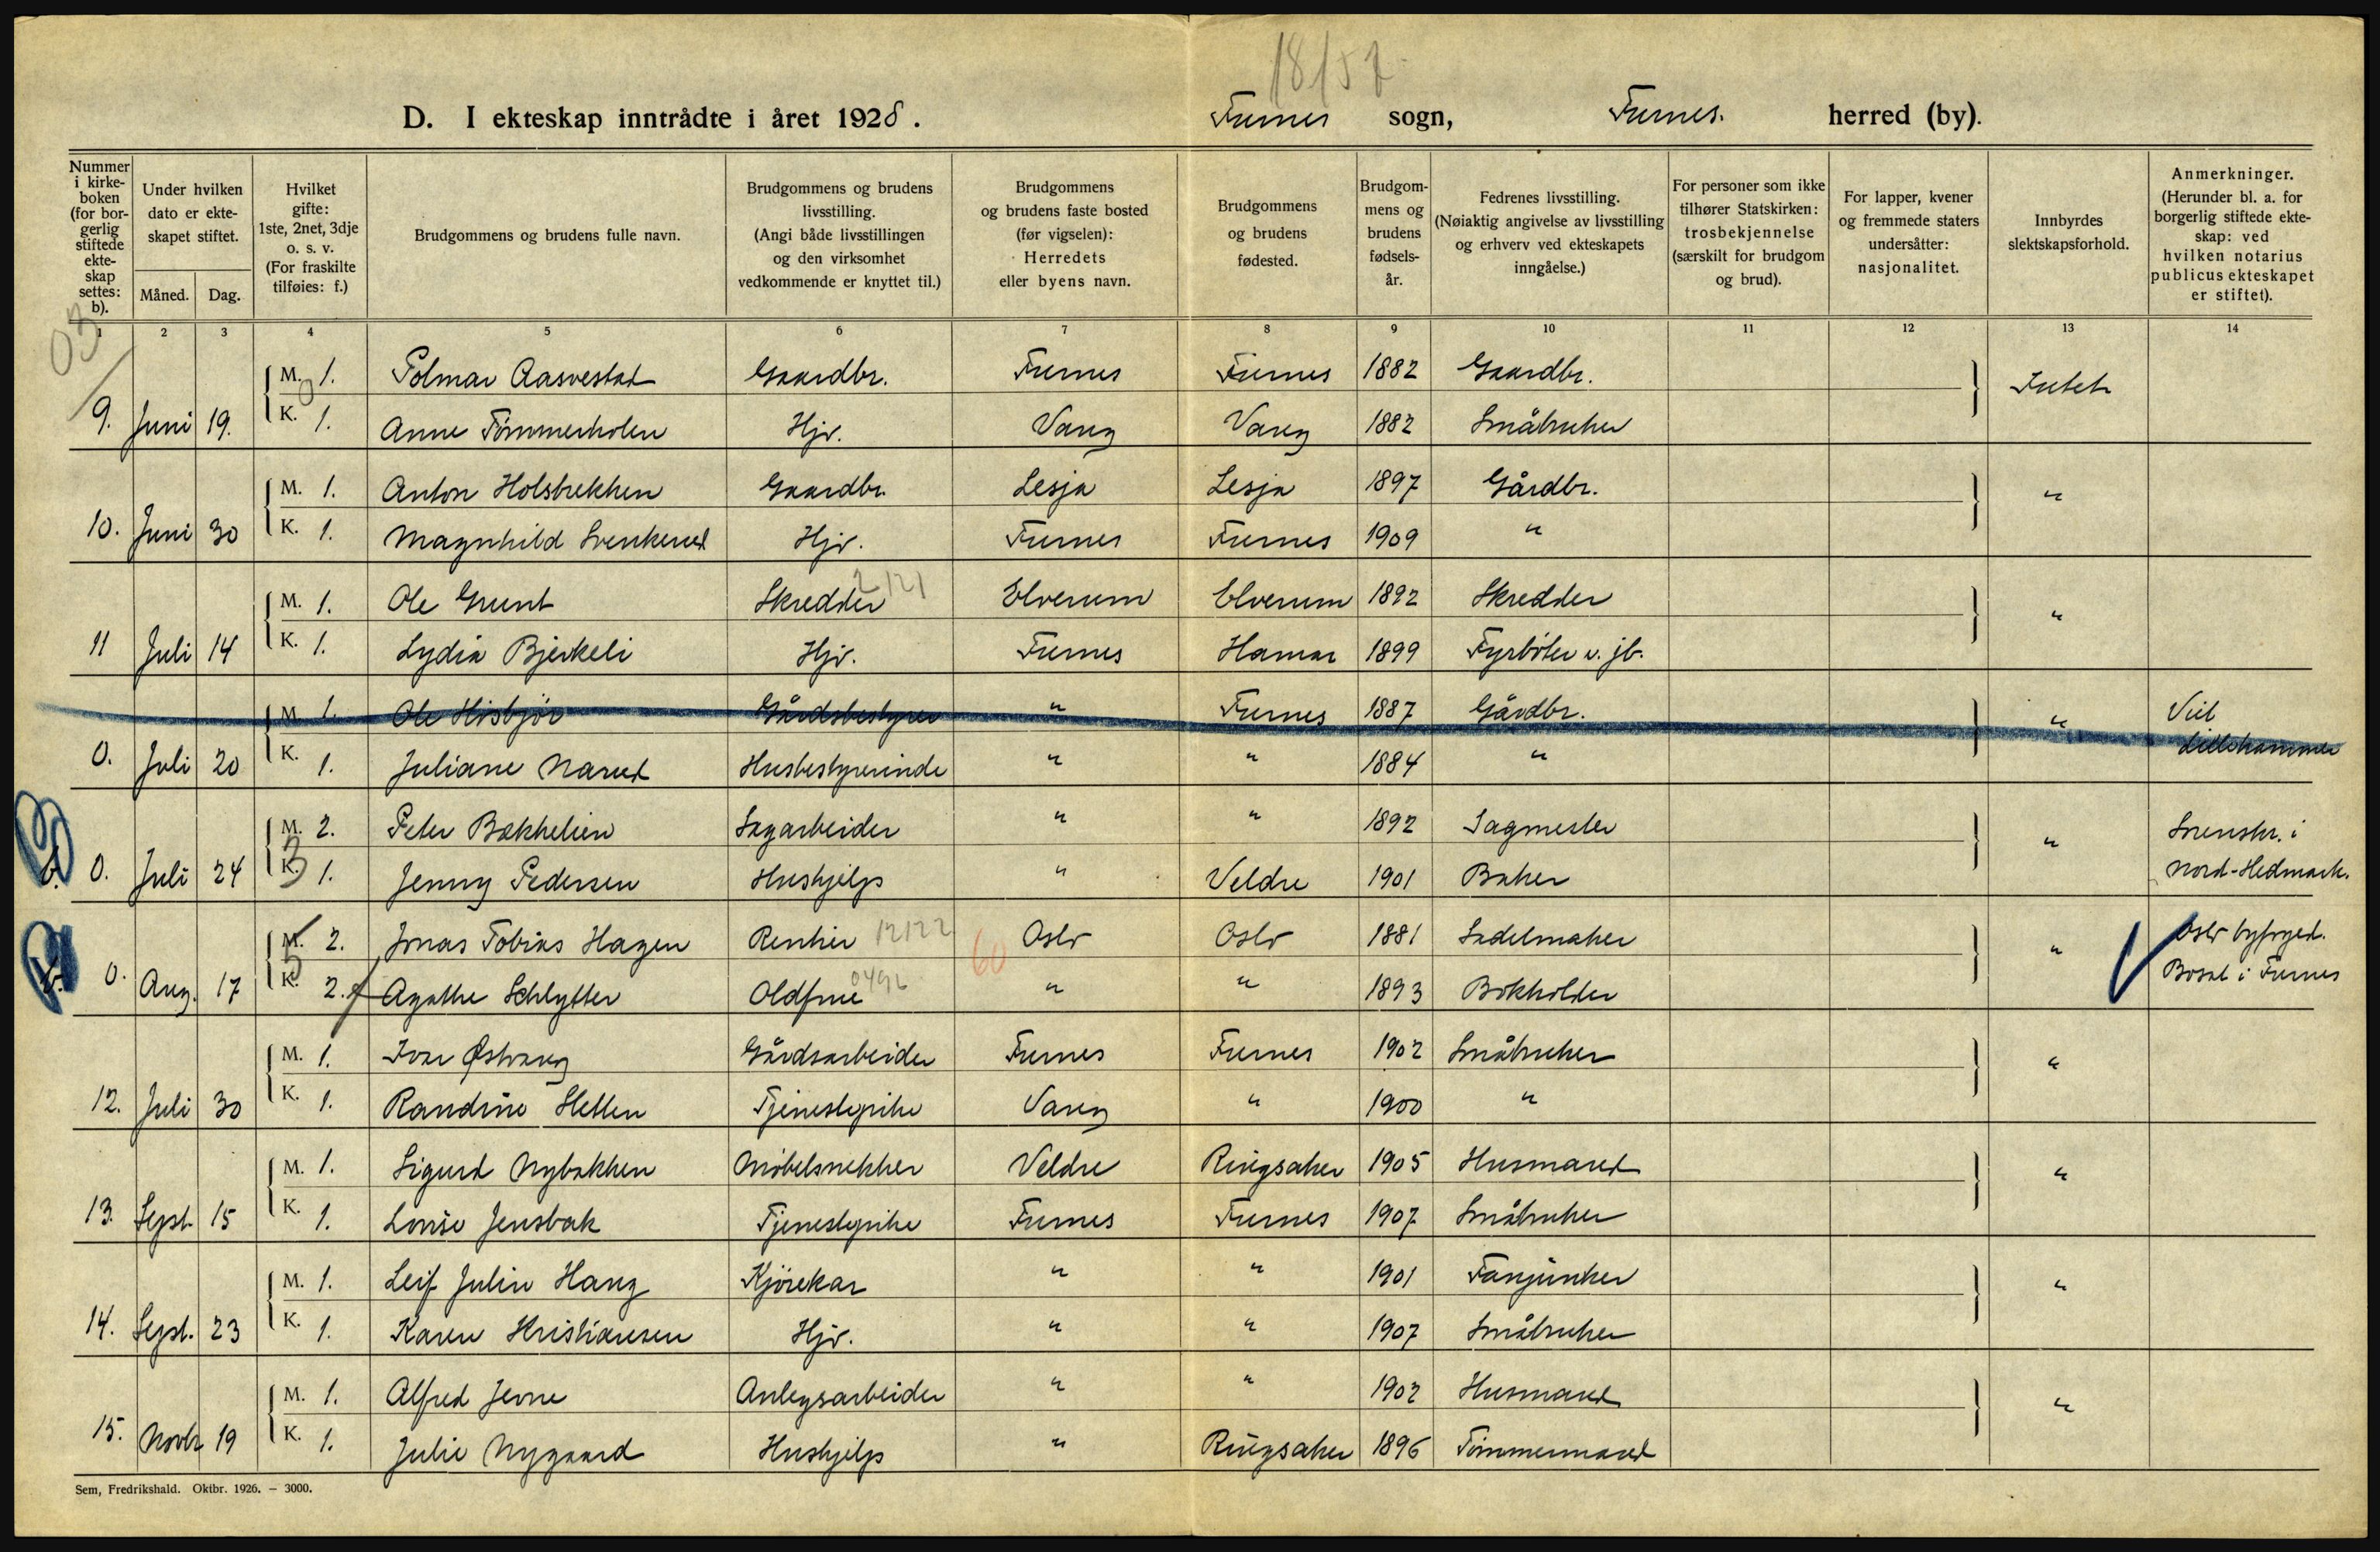 18/57
D. I ekteskap inntrådte i året 1928. Furnes sogn, Furnes. herred (by).
Nummer i kirkeboken (for borgerlig stiftede ekteskap settes: b).
Under hvilken dato er ekteskapet stiftet.
Måned. Dag.
Hvilket gifte: 1ste, 2net, 3dje o. s. v. (For fraskilte tilføies: f.)
Brudgommens og brudens fulle navn.
Brudgommens og brudens livsstilling. (Angi både livsstillingen og den virksomhet vedkommende er knyttet til.)
Brudgommens og brudens faste bosted (før vigselen): Herredets eller byens navn.
Brudgommens og brudens fødested.
Brudgommens og brudens fødselsår.
Fedrenes livsstilling. (Nøiaktig angivelse av livsstilling og erhverv ved ekteskapets inngåelse.)
For personer som ikke tilhører Statskirken: trosbekjennelse (særskilt for brudgom og brud).
For lapper, kvener og fremmede staters undersåtter: nasjonalitet.
Innbyrdes slektskapsforhold.
Anmerkninger. (Herunder bl. a. for borgerlig stiftede ekteskap: ved hvilken notarius publicus ekteskapet er stiftet).
1 2 3 4 5 6 7 8 9 10 11 12 13 14
03
M. 1. Polmar Aasvestad Gaardbr. Furnes Furnes 1882 Gaardbr. Intet
9. Juni 19. K. 1. Anne Tømmerholen Hjv. Vang Vang 1882 Småbruker
M. 1. Anton Holsbrekken Gaardbr. Lesja Lesja 1897 Gårdbr. "
10. Juni 30 K. 1. Magnhild Svenkerud Hjv. Furnes Furnes 1909 "
M. 1. Ole Grunt Skredder 2121 Elverum Elverum 1892 Skredder "
11 Juli 14 K. 1. Lydia Bjerkeli Hjv. Furnes Hamar 1899 Fyrbøter v. jb.
M. 1. Ole Hisbjør Gårdsbestyrer " Furnes 1887 Gårdbr. " Viet
0. Juli 20 K. 1. Juliane Narud Husbestyrerinde " " 1884 " Lillehammer
M. 2. Peter Bækkelien Sagarbeider " " 1892 Sagmester " Sorenskr. i
b. 0. Juli 24 K. 1. Jenny Pedersen Hushjelp " Veldre 1901 Baker Nord-Hedmark.
M. 2. Jonas Tobias Hagen Rentier 12122 60 Oslo Oslo 1881 Sadelmaker " Oslo byfoged.
b. 0. Aug. 17 K. 2. f Agathe Schlytter Oldfrue " " 1893 Bokholder Bosat i Furnes
M. 1. Ivar Østvang Gårdsarbeider Furnes Furnes 1902 Småbruker "
12. Juli 30 K. 1. Randine Sletten Tjenestepike Vang " 1900 "
M. 1. Sigurd Nybakken Møbelsnekker Veldre Ringsaker 1905 Husmand "
13. Sept. 15 K. 1. Lovise Jensbak Tjenestepike Furnes Furnes 1907 Småbruker
M. 1. Leif Julin Haug Kjørekar " " 1901 Fanejunker "
14. Sept. 23 K. 1. Karen Kristiansen Hjv. " " 1907 Småbruker
M. 1. Alfred Jevne Anlegsarbeider " " 1902 Husmand "
15. Novbr 19 K. 1. Julie Nygaard Hushjelp " Ringsaker 1896 Tømmermand
Sem, Fredrikshald. Oktbr. 1926. – 3000.